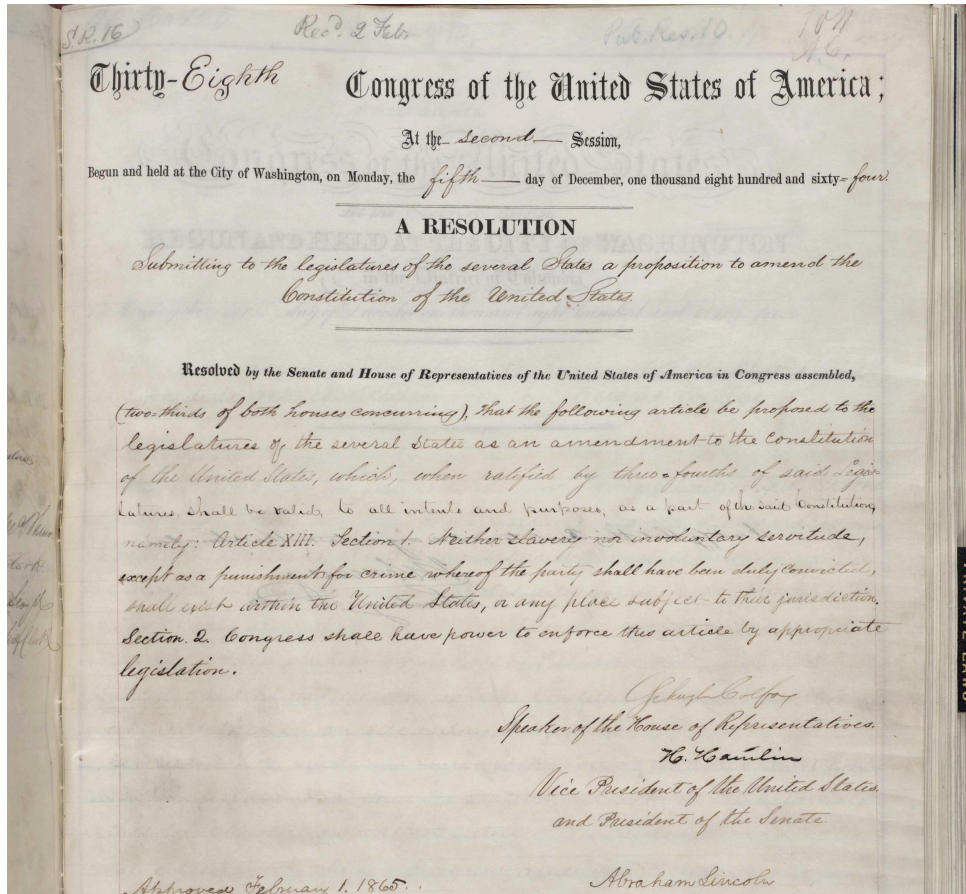 S.R. 16
Rec'd. 2 Feb.
Pub. Res. 10.
Thirty-Eighth Congress of the United States of America;
At the second Session,
Begun and held at the City of Washington, on Monday, the fifth day of December, one thousand eight hundred and sixty-four.
A RESOLUTION
Submitting to the legislatures of the several States a proposition to amend the
Constitution of the United States.
Resolved by the Senate and House of Representatives of the United States of America in Congress assembled,
(two-thirds of both houses concurring), That the following article be proposed to the
legislatures of the several States as an amendment to the Constitution
of the United States, which, when ratified by three-fourths of said Legis-
latures, shall be valid, to all intents and purposes, as a part of the said Constitution,
namely: Article XIII. Section 1. Neither slavery nor involuntary servitude,
except as a punishment for crime whereof the party shall have been duly convicted,
shall exist within the United States, or any place subject to their jurisdiction.
Section. 2. Congress shall have power to enforce this article by appropriate
legislation.
Schuyler Colfax
Speaker of the House of Representatives.
H. Hamlin
Vice President of the United States,
and President of the Senate
Approved February 1. 1865.
Abraham Lincoln